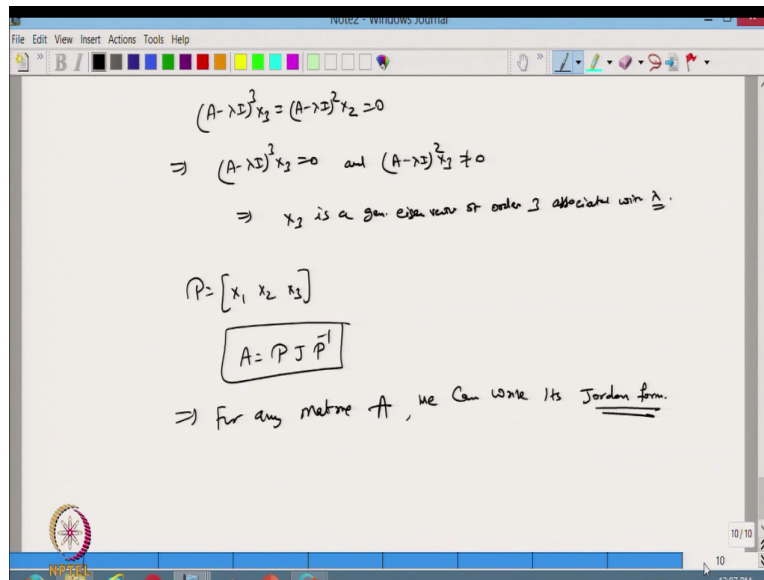 Note2 - Windows Journal
File Edit View Insert Actions Tools Help
(A-λI)³x₃ = (A-λI)²x₂ = 0
⇒ (A-λI)³x₃ = 0 and (A-λI)²x₃ ≠ 0
⇒ x₃ is a gen. eigen vector of order 3 associated with λ.
P = [x₁ x₂ x₃]
A = P J P⁻¹
⇒ For any matrix A, we can write its Jordan form.
10/10
NPTEL
10
12:07 PM